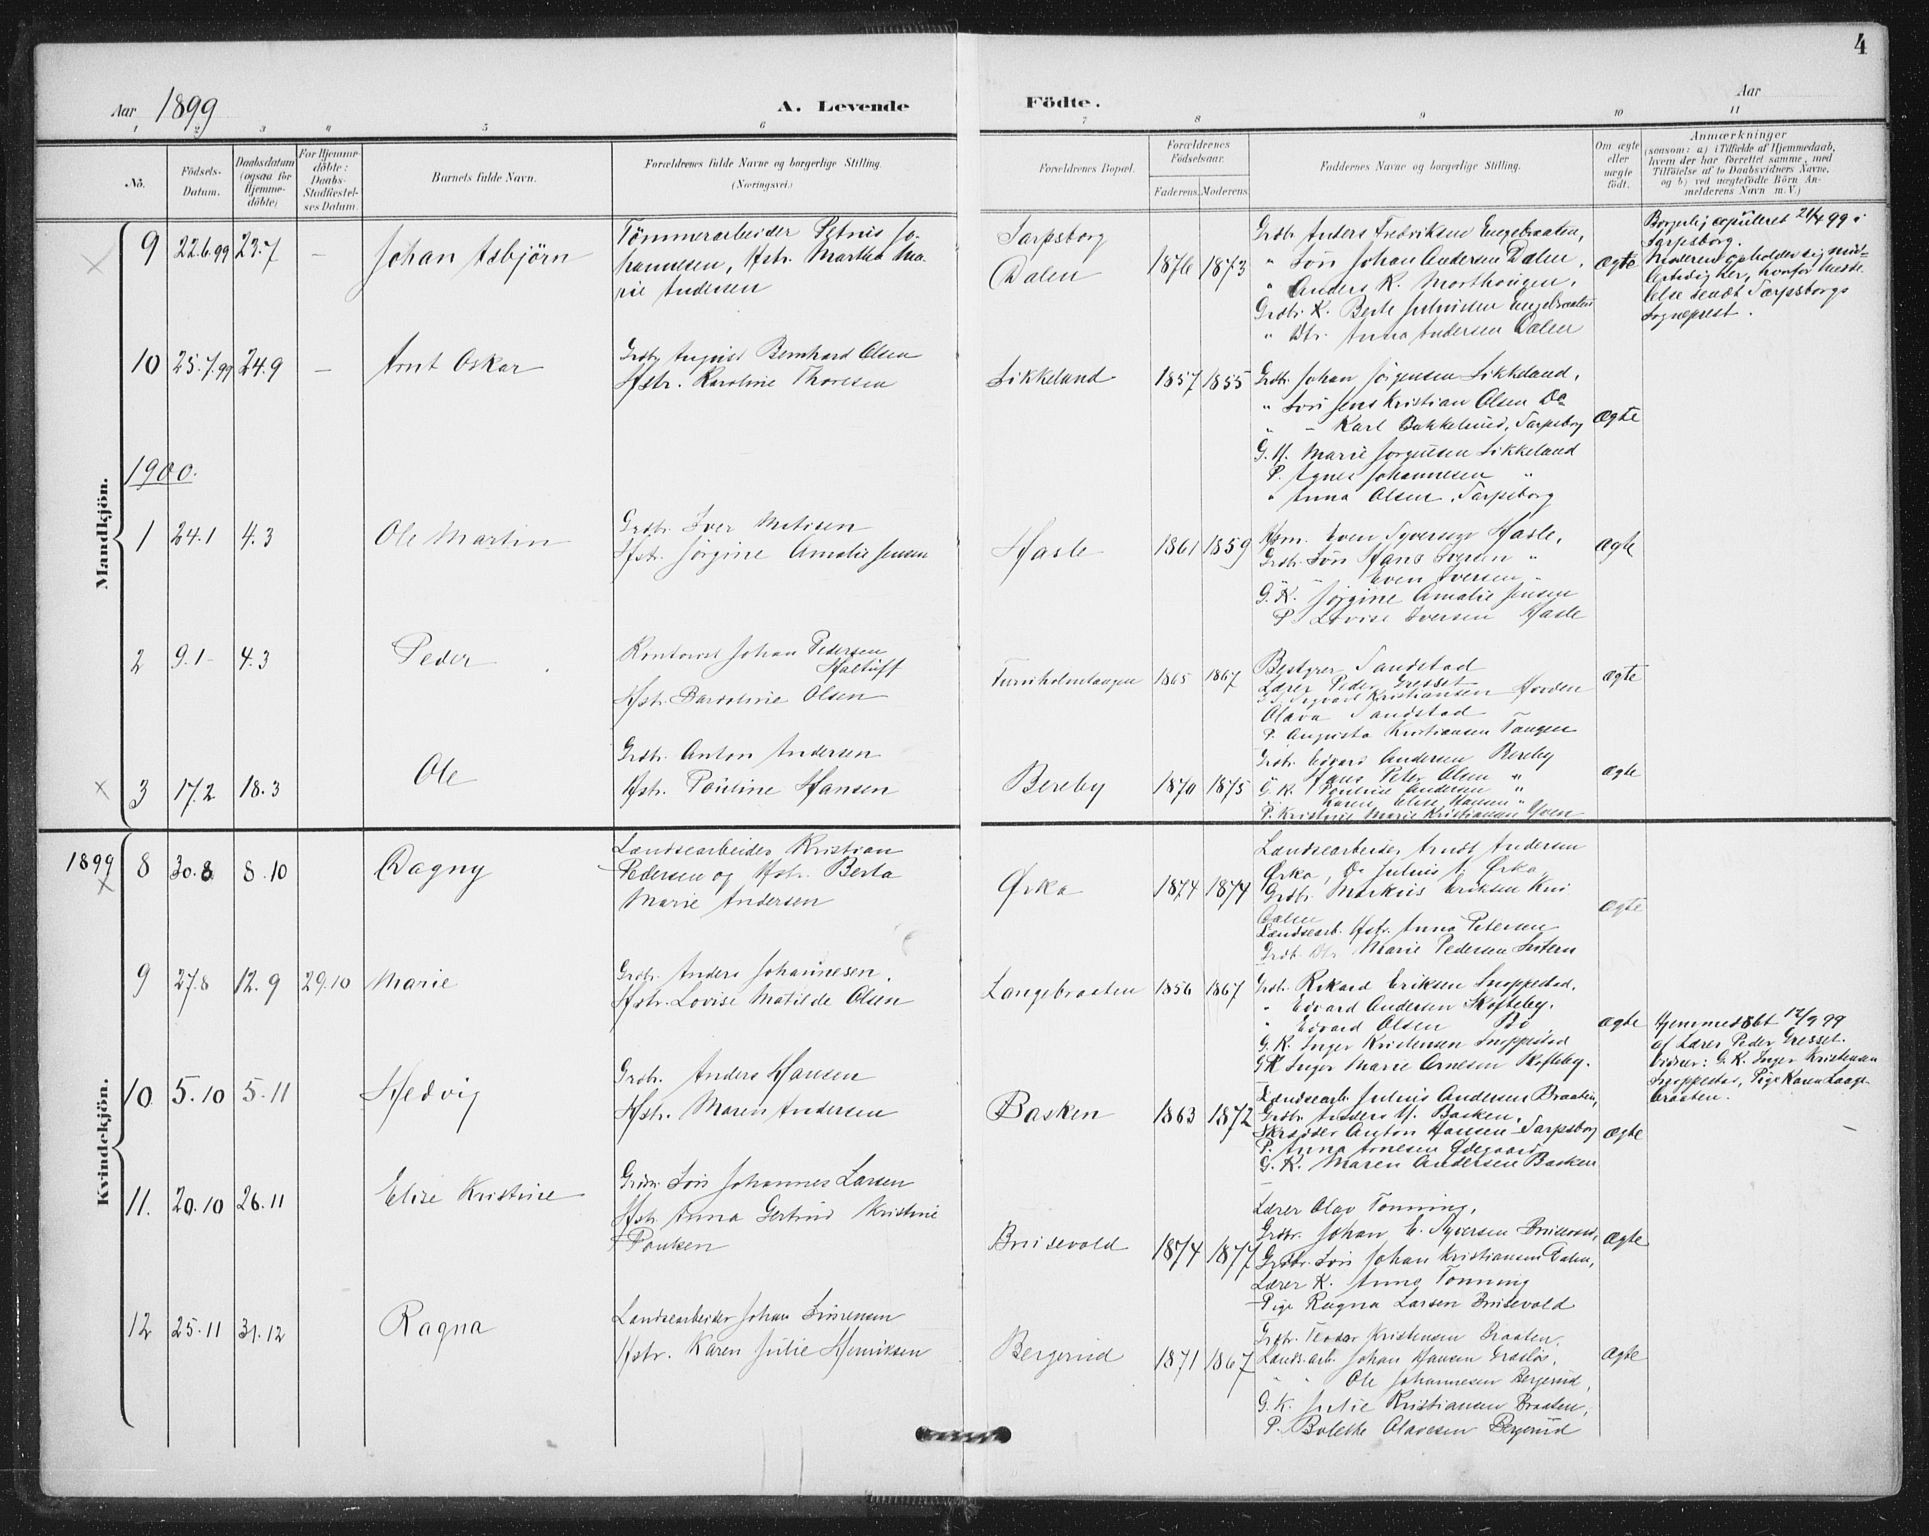 4
Aar 1899
A. Levende Födte.
Aar
1 2 3 4 5 6 7 8 9 10 11
No.
Födsels-Datum.
Daabsdatum (ogsaa for Hjemmedöbte)
For Hjemmedöbte: Daabs-Stadfæstelses Datum.
Barnets fulde Navn.
Forældrenes fulde Navne og borgerlige Stilling.
(Næringsvei.)
Forældrenes Bopæl.
Forældrenes Födselsaar.
Faderens. Moderens.
Faddernes Navne og borgerlige Stilling.
Om ægte eller uægte födt.
Anmærkninger
(saasom: a) i Tilfælde af Hjemmedaab,
hvem der har forrettet samme, med
Tilföielse af to Daabsvidners Navne,
og b) ved uægtefödte Börn Anmelderens Navn m. V.)
Mandkjön.
9 22.6.99 23.7 – Johan Asbjörn
Tömmerarbeider Petrus Johannesen, Hstr. Martha Marie Andersen
Sarpsborg
Dalen
1876 1873
Grdbr. Anders Fredriksen Engebraaten,
" Sön Johan Andersen Dalen,
" Anders K. Morthaugen,
Grdbr. K. Berte Juliussen Engebraaten
" Dtr. Anna Andersen Dalen
Ægte
Borgerlig copuleret 21/4 99 i
Sarpsborg.
Moderen opholder sig midlertidig her, hvorfor meddelelse sendt Sarpsborgs
Sogneprest.
10 25.7.99 24.9 – Arnt Oskar
Grdbr. August Bernhard Olsen
Hstr. Karoline Thoresen
Likkeland
1857 1855
Grdbr. Johan Jörgensen Likkeland,
" Sön Jens Kristian Olsen Do
" " Karl Bakkelund, Sarpsborg
G. K. Marie Jörgensen Likkeland
P. Agnes Johannesen "
" Anna Olsen, Sarpsborg
Ægte
1900.
1 24.1 4.3 Ole Martin
Grdbr. Iver Matisen
Hstr. Jörgine Amalie Jensen
Hasle
1861 1859
Hsm. Even Syversen Hasle,
Grdbr. Sön Hans Iversen "
" Even Iversen "
G. K. Jörgine Amalie Jensen
P. Lovise Iversen Hasle
Ægte
2 9.1 4.3 Peder
Kontorist Johan Pedersen
Hstr. Olsen
1865 1867
Bestyrer Sandstad
Lærer Peder Gresset
Kristiansen
Olava Sandstad
P. Augusta Kristiansen Tangen
Ægte
3 17.2 18.3 Ole
Grdbr. Anton Andersen
Hstr. Pauline Hansen
Bereby
1870 1875
Grdbr. Edvard Andersen Bereby
Hans Peter Olsen "
G. K. Pauline Andersen "
Karen Elise Hansen "
P. Kristine Marie Kristiansen
Ægte
1899
Kvindekjön.
8 30.8 8.10 Dagny
Landsearbeider Kristian
Pedersen og Hstr. Berta
Marie Andersen
Ørka
1874 1874
Landsearbeider Arndt Andersen
Ørka, Do Julius A. Ørka,
Grdbr. Markus Eriksen
Dalen
Landsearb. Hstr. Anna Petersen
Grdb. Dtr. Marie Pedersen
Ægte
9 27.8 12.9 29.10 Marie
Grdbr. Anders Johannesen,
Hstr. Lovise Matilde Olsen
Langebraaten
1856 1867
Grdbr. Rikard Eriksen Snoppestad,
" Edvard Andersen Skofteby,
" Edvard Olsen Bö
G. K. Inger Kristensen Snoppestad
G.K. Inger Marie Arnesen Skofteby.
Ægte
Hjemmedöbt 12/9 99
af Lærer Peder Gresset.
Vidner: G. K. Inger Kristensen
Snoppestad, Pige Karen Langebraaten.
10 5.10 5.11 Hedvig
Grdb. Anders Hansen
Hstr. Maren Andersen
Basken
1863 1872
Landsearb. Julius Andersen Braaten,
Grdbr. Anders H. Basken,
Skræder Anton Hansen Sarpsborg
P. Anna Arnesen Ødegaard
G. K. Maren Andersen Basken
Ægte
11. 20.10 26.11 Elise Kristine
Grdbr. Sön Johannes Larsen
Hstr. Anna Gertrud Kristine
Paulsen
Brusevold
1874 1877
Lærer Olav Tonning,
Grdbr. Johan E. Syversen Brusevold,
Grdbr. Sön Johan Kristiansen Dalen,
Lærer K. Anna Tonning
Pige Ragna Larsen Brusevold
Ægte
12 25.11 31.12 Ragna
Landsearbeider Johan Sörensen
Hstr. Karen Julie Henriksen
Bergerud
1871 1867
Grdbr. Teodor Kristensen Braaten,
Landsarb. Johan Hansen Graslös,
" " Ole Johannesen Bergerud,
G. K. Julie Kristiansen Braaten,
P. Bolette Olavesen Bergerud
Ægte